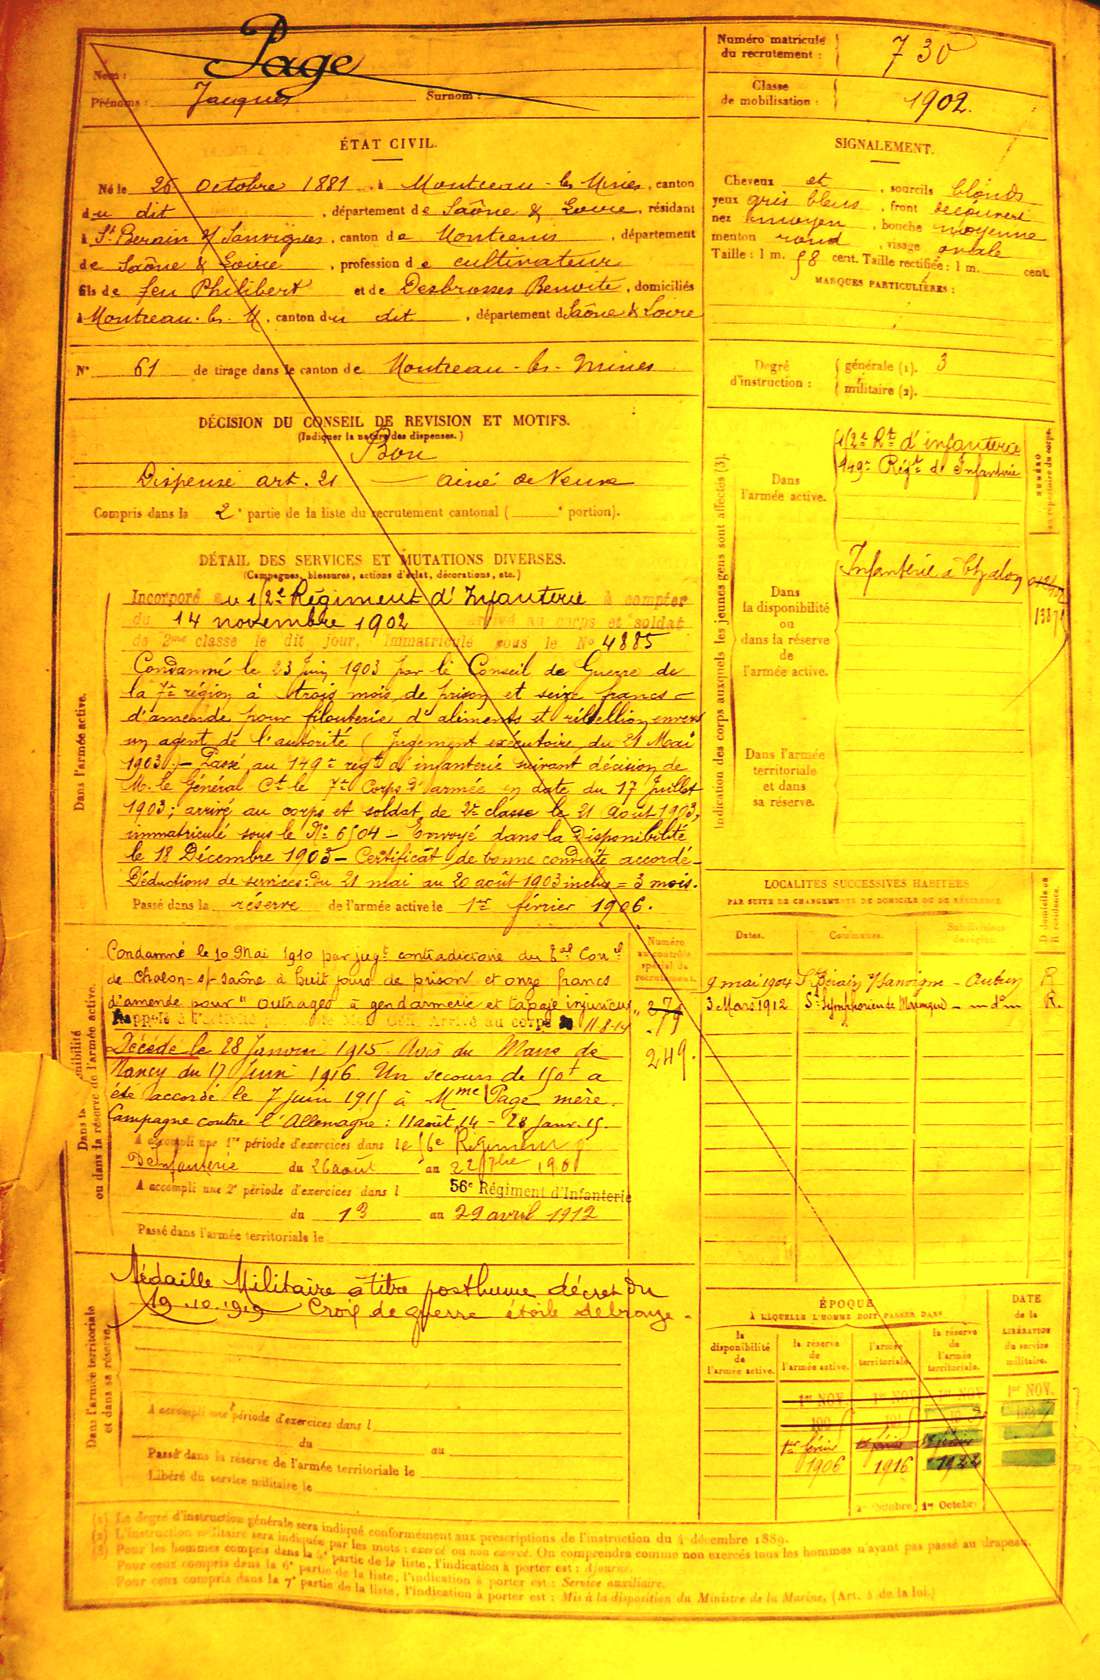 Nom : Page
Prénoms : Jacques Surnom :
Numéro matricule du recrutement : 730
Classe de mobilisation : 1902.
ÉTAT CIVIL.
Né le 26 octobre 1881, à Montceau-les-Mines, canton
du dit, département de Saône & Loire, résidant
à St Berain s/ Sanvignes, canton de Montcenis, département
de Saône & Loire, profession de cultivateur
fils de feu Philibert et de Desbrosses Benoite, domiciliés
à Montceau-les-M., canton du dit, département d Saône & Loire
N° 61 de tirage dans le canton de Montceau-les-Mines
SIGNALEMENT.
Cheveux et, sourcils blonds
yeux gris bleus, front découvert
nez moyen, bouche moyenne
menton rond, visage ovale
Taille : 1 m. 58 cent. Taille rectifiée : 1 m. cent.
MARQUES PARTICULIÈRES :
Degré d'instruction : générale (1). 3
militaire (2).
DÉCISION DU CONSEIL DE REVISION ET MOTIFS.
(Indiquer la nature des dispenses.)
Bon
Dispensé art. 21 — ainé de Veuve
Compris dans la 2e partie de la liste du recrutement cantonal ( e portion).
DÉTAIL DES SERVICES ET MUTATIONS DIVERSES.
(Campagnes, blessures, actions d'éclat, décorations, etc.)
Dans l'armée active.
Incorporé au 152e Régiment d'Infanterie à compter
du 14 novembre 1902 arrivé au corps et soldat
de 2me classe le dit jour, immatriculé sous le N° 4885
Condamné le 23 Juin 1903 par le Conseil de Guerre de
la 7e région à trois mois de prison et seize francs
d'amende pour filouterie d'aliments et rébellion envers
un agent de l'autorité (Jugement exécutoire du 21 Mai
1903.) — Passé au 149e régt d'infanterie suivant décision de
M. le Général Ct le 7e Corps d'armée en date du 17 Juillet
1903; arrivé au corps et soldat de 2e classe le 21 Aout 1903,
immatriculé sous le N° 6504 — Envoyé dans la Disponibilité
le 18 Décembre 1905 — Certificat de bonne conduite accordé —
Déductions de services: du 21 mai au 20 août 1903 inclus = 3 mois.
Passé dans la réserve de l'armée active le 1er février 1906.
Indication des corps auxquels les jeunes gens sont affectés (3).
NUMÉRO au répertoire du corps.
Dans l'armée active.
152e Rt d'infanterie
149e Régt de Infanterie
Dans la disponibilité ou dans la réserve de l'armée active.
Infanterie à Chalon
Dans l'armée territoriale et dans sa réserve.
LOCALITÉS SUCCESSIVES HABITÉES
PAR SUITE DE CHANGEMENTS DE DOMICILE OU DE RÉSIDENCE.
Dates. Communes. Subdivisions de région. D domicile ou R résidence.
9 mai 1904 St Bérain s/ Sanvigne - Autun R
3 Mars 1912 St Symphorien de Marmagne - — do — R.
Dans la disponibilité ou dans la réserve de l'armée active.
Numéro au contrôle spécial du recrutement.
279
249.
Condamné le 10 Mai 1910 par jugt contradictoire du Bal Corel
de Chalon-s/-Saône à huit jours de prison et onze francs
d'amende pour "outrages à gendarmerie et tapage injurieux"
Rappelé à l'activité Arrivé au corps le 11-8-14
Décédé le 28 Janvier 1915. Avis du Maire de
Nancy du 17 Juin 1916. Un secours de 150f a
été accordé le 7 juin 1915 à Mme Page mère.
Campagne contre l'Allemagne : 11 août 14 - 28 Janv. 15.
A accompli une 1re période d'exercices dans le 56e Régiment
D'Infanterie du 26 août au 22 7bre 190
A accompli une 2e période d'exercices dans l 56e Régiment d'Infanterie
du 13 au 29 avril 1912
Passé dans l'armée territoriale le
Dans l'armée territoriale et dans sa réserve.
Médaille Militaire à titre posthume décret du
19.10.1919 Croix de guerre étoile de bronze.
A accompli une période d'exercices dans l
du au
Passé dans la réserve de l'armée territoriale le
Libéré du service militaire le
ÉPOQUE
À LAQUELLE L'HOMME DOIT PASSER DANS
DATE de la LIBÉRATION du service militaire.
la disponibilité de l'armée active. la réserve de l'armée active. l'armée territoriale. la réserve de l'armée territoriale.
1er NOV. 1er NOV. 1er NOV. 1er NOV.
1er février 1906
1916
1922
1er Octobre
(1) Le degré d'instruction générale sera indiqué conformément aux prescriptions de l'instruction du 4 décembre 1889.
(2) L'instruction militaire sera indiquée par les mots : exercé ou non exercé. On comprendra comme non exercés tous les hommes n'ayant pas passé au drapeau.
(3) Pour les hommes compris dans la 5e partie de la liste, l'indication à porter est : Ajourné.
Pour ceux compris dans la 6e partie de la liste, l'indication à porter est : Service auxiliaire.
Pour ceux compris dans la 7e partie de la liste, l'indication à porter est : Mis à la disposition du Ministre de la Marine, (Art. 4 de la loi.)